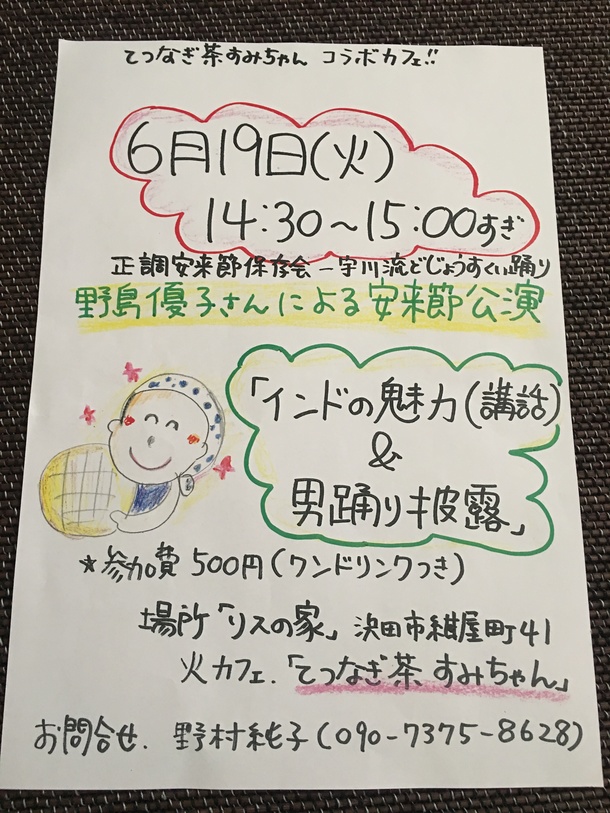 てつなぎ茶すみちゃん コラボカフェ!!
6月19日(火)
14:30～15:00すぎ
正調安来節保存会 一宇川流どじょうすくい踊り
野島優子さんによる安来節公演
「インドの魅力(講話)
&
男踊り披露」
★参加費 500円(ワンドリンクつき)
場所「リスの家」浜田市紺屋町41
火カフェ.「てつなぎ茶 すみちゃん」
お問合せ. 野村純子(090-7375-8628)